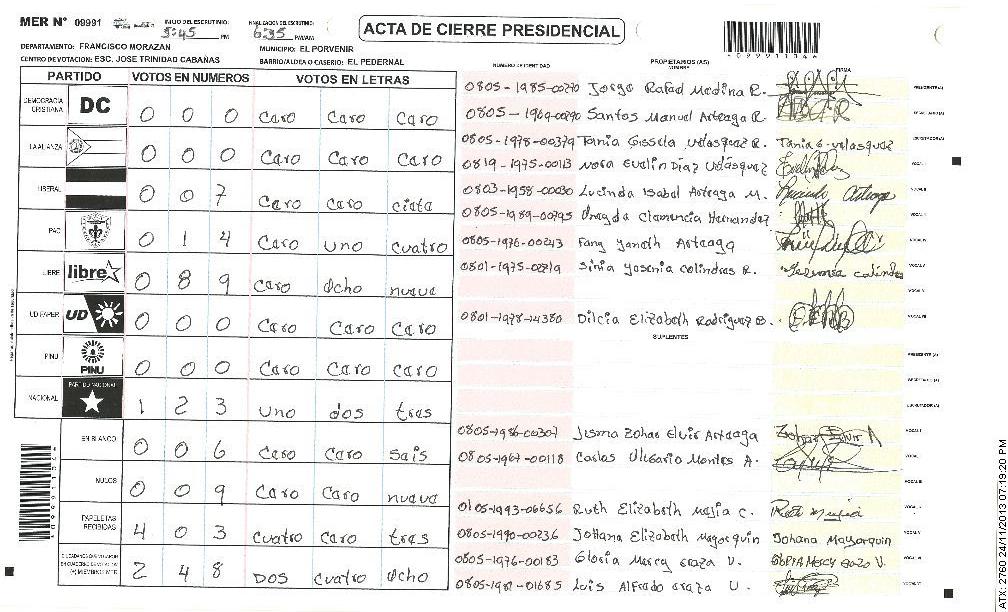 MER N° 09991 INICIO DEL ESCRUTINIO: 5:45 PM FINALIZACION DEL ESCRUTINIO: 6:35 PM/AM ACTA DE CIERRE PRESIDENCIAL
DEPARTAMENTO: FRANCISCO MORAZAN MUNICIPIO: EL PORVENIR
CENTRO DE VOTACION: ESC. JOSE TRINIDAD CABAÑAS BARRIO/ALDEA O CASERIO: EL PEDERNAL
099911046
PARTIDO VOTOS EN NUMEROS VOTOS EN LETRAS
DEMOCRACIA CRISTIANA DC 0 0 0 Cero Cero Cero
LA ALIANZA 0 0 0 Cero Cero Cero
LIBERAL 0 0 7 Cero Cero ciete
PAC 0 1 4 Cero uno cuatro
LIBRE libre 0 8 9 Cero Ocho nueve
UD FAPER UD 0 0 0 Cero Cero Cero
PINU PINU 0 0 0 Cero Cero Cero
NACIONAL PARTIDO NACIONAL 1 2 3 uno dos tres
EN BLANCO 0 0 6 Cero Cero seis
NULOS 0 0 9 Cero Cero nueve
PAPELETAS RECIBIDAS 4 0 3 Cuatro Cero tres
CIUDADANOS QUE VOTARON EN CUADERNO DE VOTACION (+) MIEMBROS MER 2 4 8 DOS Cuatro Ocho
NUMERO DE IDENTIDAD PROPIETARIOS (AS) NOMBRE FIRMA
0805-1985-00270 Jorge Rafael Medina R. PRESIDENTE(A)
0805-1969-00290 Santos Manuel Arteaga R. SECRETARIO (A)
0805-1978-00379 Tania Gissela Velasquez R. Tania G. velasquez ESCRUTADOR(A)
0819-1975-00113 Nora Evelin Díaz Velásquez VOCAL I
0803-1958-00030 Lucinda Isabel Arteaga M. Lucinda Arteaga VOCAL II
0805-1989-00795 Clemencia Hernandez
0805-1976-00243 Fany Janeth Arteaga
0801-1975-02819 Sinia Yosenia Colindres R. Yesenia colindres VOCAL V
0801-1978-14380 Dilcia Elizabeth Rodriguez B.
SUPLENTES
PRESIDENTE (A)
SECRETARIO (A)
ESCRUTADOR(A)
0805-1986-00307 Jisma Zohae Elvir Arteaga VOCAL I
0805-1967-00118 Carlos Olegario Montes A.
0105-1993-06656 Ruth Elizabeth Mejia C. Ruth Mejia
0805-1990-00236 Johana Elizabeth Mayorquin Johana Mayorquin
0805-1976-00183 Gloria Mercy eraza V.
0805-1981-01685 Luis Alfredo eraza V.
ATX: 2760 24/11/2013 07:19:20 PM